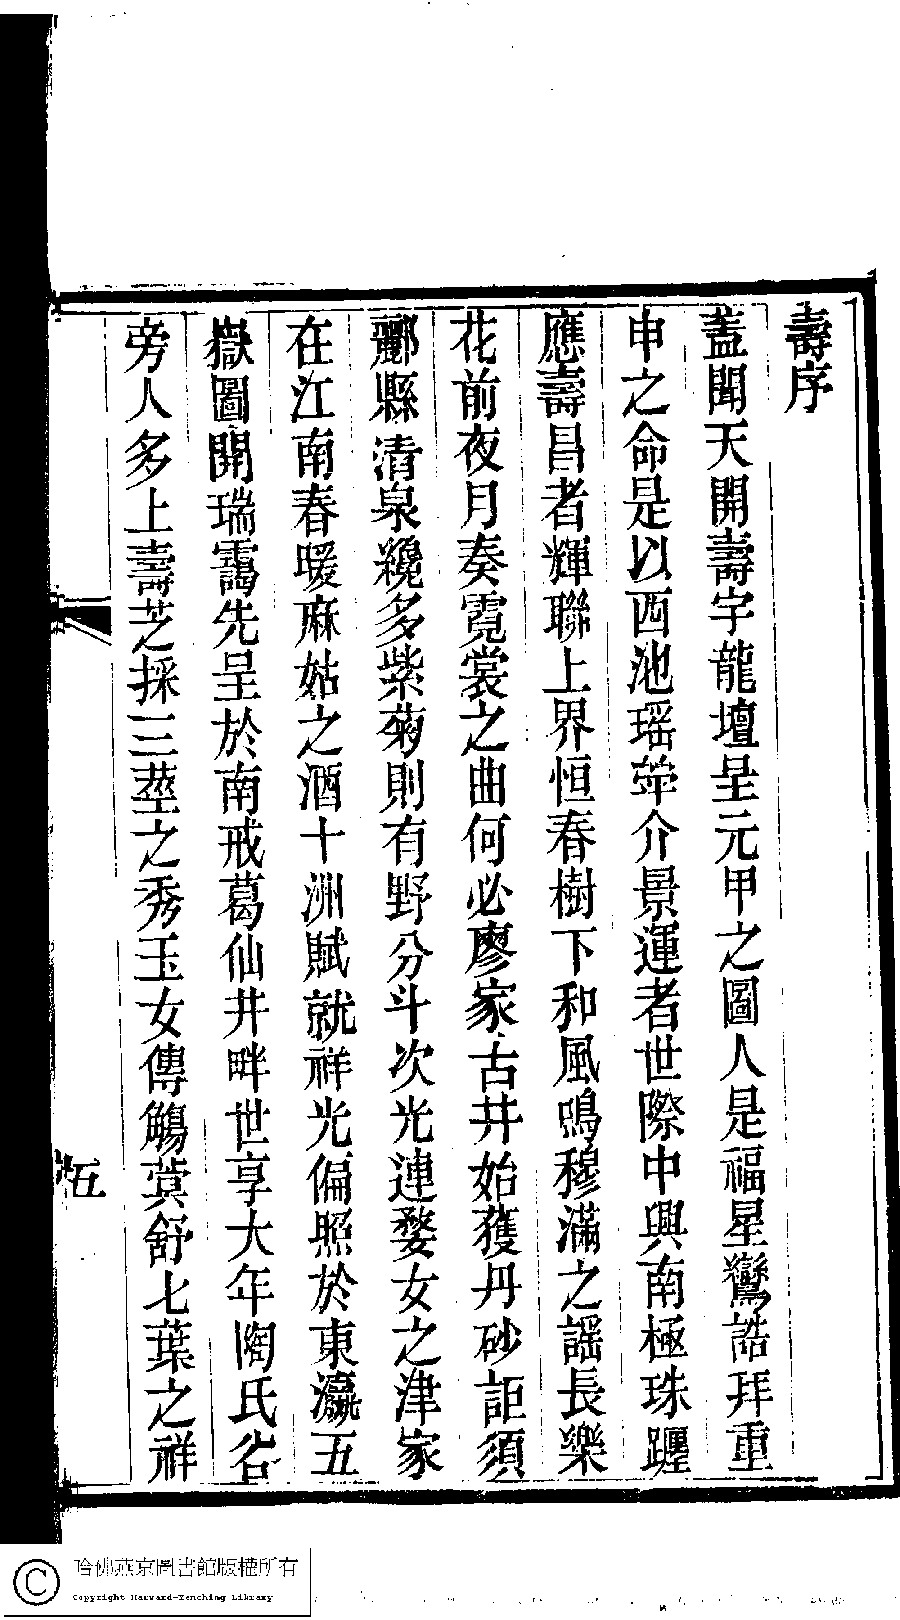 壽序
蓋聞天開壽宇龍壇呈元甲之圖人是福星鸞誥拜重
申之命是以西池瑤萍介景運者世際中興南極珠躔
應壽昌者輝聯上界恒春樹下和風鳴穆滿之謡長樂
花前夜月奏霓裳之曲何必廖家古井始獲丹砂詎須
酈縣清泉纔多紫菊則有野分斗次光連婺女之津家
在江南春暖麻姑之酒十洲賦就祥光偏照於東瀛五
嶽圖開瑞靄先呈於南戒葛仙井畔世享大年陶氏
旁人多上壽芝採三莖之秀玉女傳觴蓂舒七葉之祥
五
哈佛燕京圖書館版權所有
Copyright Harvard-Yenching Library